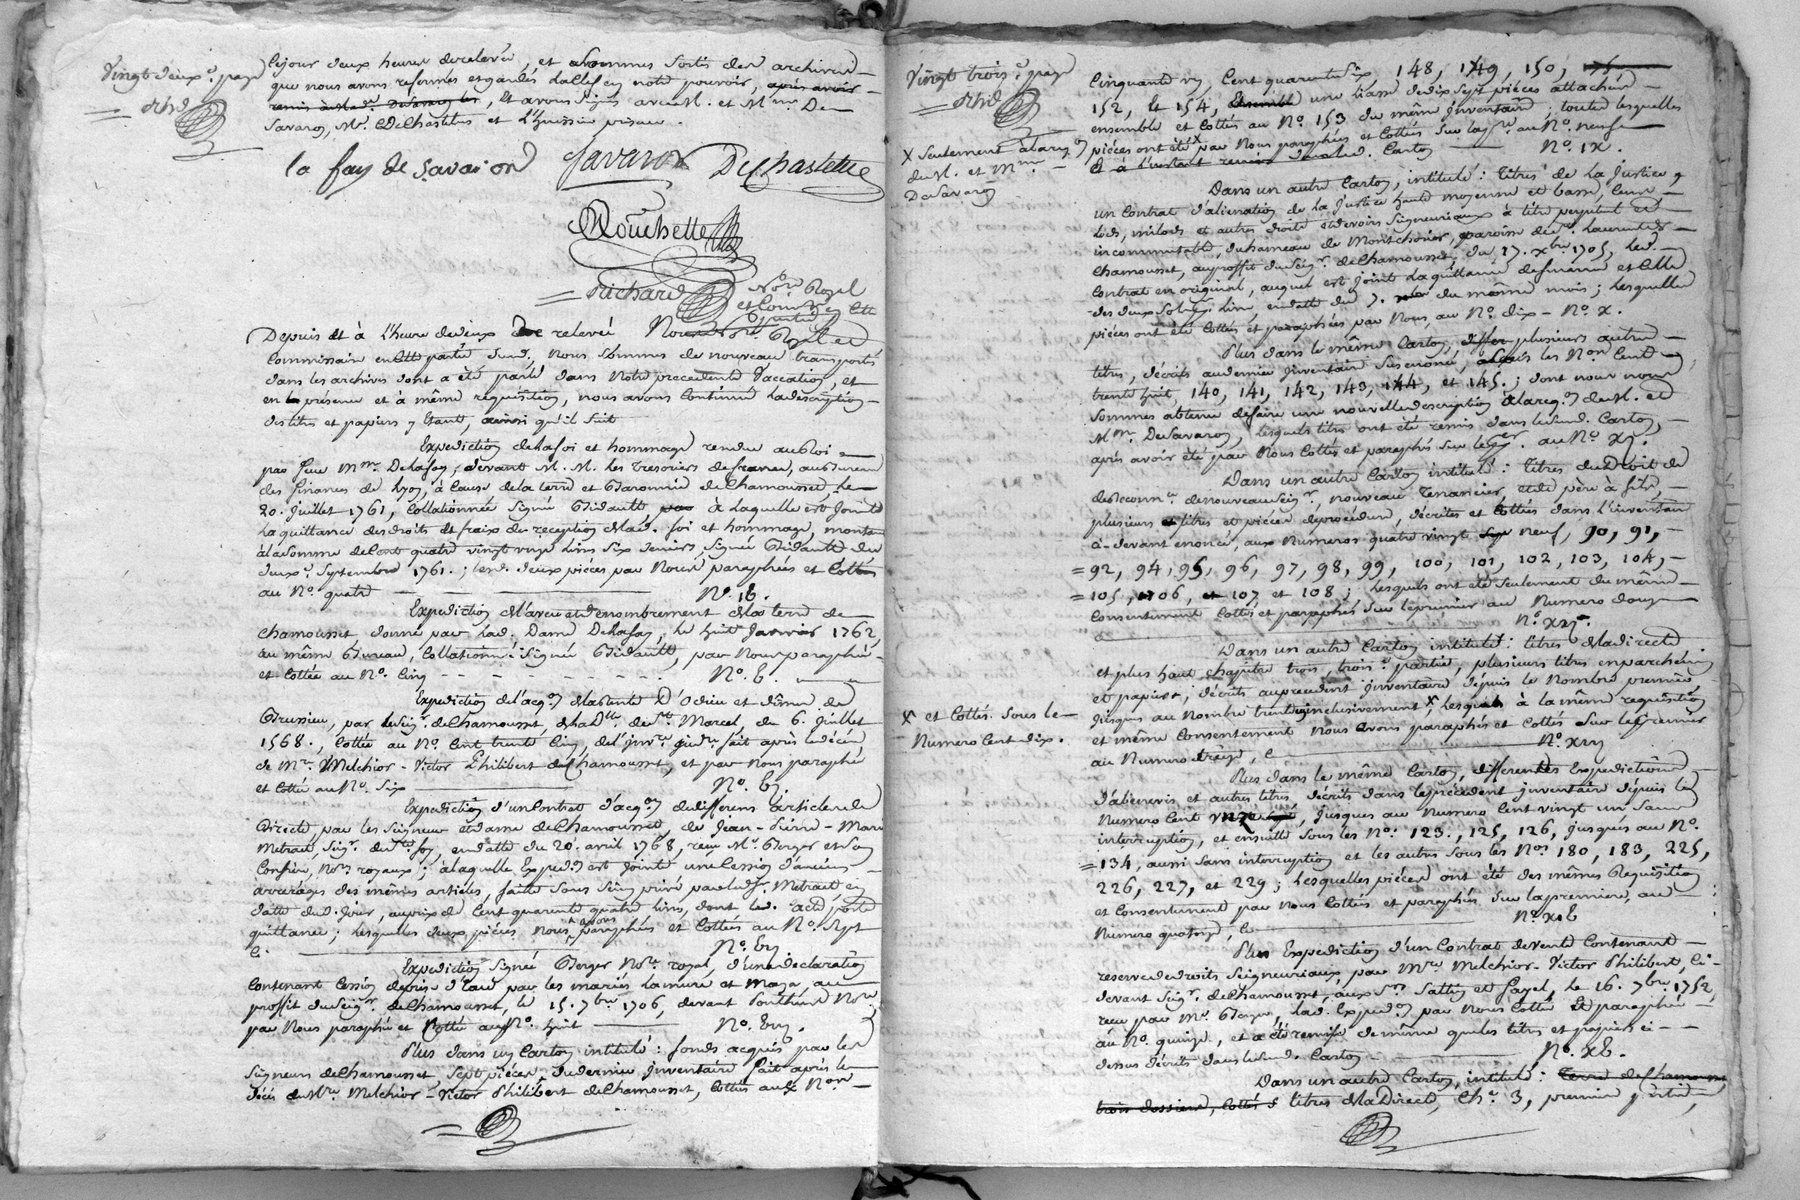 Vingt deuxe. page
Rhd
ce jour deux heures de relevée, et sommes sortis des archives
que nous avons refermés et gardés la clef en notre pouvoir, après avoir
remis à Mad. De Savaron les, et avons signé avec M. et Mme De
Savaron, Mr. DeChastelus et l'huissier priseur.
la fay de savaron Savaron DeChastellu
Rouchette
Richard Nore. Royal
et Commre. en cette
partie
Depuis et à l'heure de deux de relevée Nous Nore. Royal et
Commissaire en cette partie susd., nous sommes de nouveau transportés
dans les archives dont a été parlé dans notre precedente vaccation, et
en la présence et à même requisition, nous avons continué la description
des titres et papiers y étant, ainsi qu'il suit
Expedition de la foi et hommage rendue au Roi
par feue Mme. Delafay, devant M. M. les tresoriers de france, au Bureau
des finances de Lyon, à cause de la terre et Baronnie de Chamousset le
20. juillet 1761, collationnée signé Bidault, à laquelle est jointe
la quittance des droits et fraix de reception de lad. foi et hommage, montant
à la somme de cent quatre vingt onze livres six deniers, signée Bidault du
deuxe. Septembre 1761.; lesd. deux pièces par Nous paraphées et Cottées
au No. quatre No. 4.
Expedition d'aveu et denombrement de la terre de
Chamousset, donné par lad. Dame Delafay, le huit Janvier 1762,
au même Bureau, Collationné signée Bidault, par Nous paraphé
et Cottée au No. Cinq No. V.
Expedition de l'acqon. de la rente D'Odieu et dîme de
Brussieu, par le Seigr. de Chamousset, de la Dlle. de St. Marcel, du 6. juillet
1568., Cottée au No. Cent trente Cinq, de l'invre. judre. fait après le décès
de Mre. Melchior-Victor Philibert de Chamousset, et par nous paraphé
et Cottée au No. Six No. VI.
Expedition d'un Contrat d'acqon. de differens articles de
directe, par les Seigneur et dame de Chamousset, de Jean-Pierre-Marie
Metrait, Seigr. de Ste. foy, en datte du 20. avril 1768, reçu Me. Berger et son
Confrère, Nores. royaux; à laquelle Expedon. est jointe une Cession d'anciens
arrerages des mêmes articles, faite sous Seing privé par led. Sr. Metrait, en
datte dud. jour, au prix de Cent quarante quatre livres, dont led. acte porte
quittance; lesquelles deux pièces nous avons paraphés et Cottées au No. Sept
No. VII.
Expedition signée Berger Nore. royal, d'une declaration
contenant Cession de prise d'eau par les mariés Lamure et Maza, au
proffit du Seigr. de Chamousset, le 15. 7bre 1706, devant Ponthus Nore.
par Nous paraphé et Cottée au No. huit No. VIII.
Plus dans un Carton intitulé: fonds acquis par les
Seigneurs de Chamousset Sept pièces du dernier Inventaire fait après le
décès de Mre. Melchior-Victor Philibert de Chamousset, Cottées aux Nos.
Vingt troise. page
Rhd
Cinquante un, Cent quarante six, 148, 149, 150,
152, et 154, ensemble une liasse de dix sept pièces attachées
ensemble et Cottées au No. 153 du même Inventaire; toutes lesquelles
pièces ont été X par Nous paraphées et Cottées sur la pre. au No. neuf
Et à l'instant remises dans led. Carton No. IX.
X Seulement à la reqon
de M. et Mme.
De Savaron
Dans un autre Carton, intitulé: titres de la Justice,
un Contrat d'alienation de la Justice haute moyenne et basse, Cens,
Lods, milods et autres droits et devoirs Seigneuriaux à titre perpetuel et
incommutable, du hameau de Montchoisier, paroisse de St. Laurent de
Chamousset, au proffit du Seigr. de Chamousset, du 17. Xbre 1705, led.
Contrat en original, auquel est joint la quittance de finance et Celle
des deux Sols pr. livre, en datte du 7. du même mois; lesquelles
pièces ont été Cottées et paraphées par Nous, au No. dix - No. X.
Plus dans le même Carton, plusieurs autres
titres, décrits au dernier Inventaire sus enoncé, les Nos Cent
trente huit, 140, 141, 142, 143, 144, et 145.; dont nous nous
sommes abtenu de faire une nouvelle description à la reqon. de M. et
Mme. De Savaron, lesquels titres ont été remis dans le susd. Carton,
après avoir été par Nous Cottés et paraphés sur le 1er. au No. XI.
Dans un autre Carton intitulé: Titres du Droit de
de Reconnce. de nouveau Seigr., nouveau Tenancier, et de père à fils,
plusieurs titres et pièces de procédure, décrites et Cottées dans l'inventaire
ci-devant enoncé, aux Numeros quatre vingt neuf, 90, 91,
= 92, 94, 95, 96, 97, 98, 99, 100, 101, 102, 103, 104,
= 105, 106, 107 et 108; lesquels ont été seulement du même
Consentement Cottés et paraphés sur le premier au Numero douze
No. XII.
Dans un autre Carton intitulé: titres de la directe
et plus haut Chapitre trois, troise. partie, plusieurs titres en parchemin
et papier, décrits au precedent Inventaire depuis le Nombre premier
jusques au Nombre trente inclusivement X, lesquels à la même requisition
et même Consentement Nous avons paraphés et Cottés sur le premier
au Numero treize, No. XIII
X et Cottés. Sous le
Numero Cent dix.
Plus dans le même Carton, differentes Expeditions
d'abenevis et autres titres décrits dans le precedent Inventaire depuis le
Numero Cent onze, jusques au Numero Cent vingt un sans
interruption, et ensuite sous les No. 123., 125, 126, jusques au No.
= 134, aussi sans interruption et les autres sous les Nos 180, 183, 225,
226, 227, et 229; lesquelles pièces ont été des mêmes Requisition
et Consentement par nous Cottées et paraphés sur la premiere, au
Numero quatorze, No. XIV
Plus Expedition d'un Contrat de vente Contenant
reserve de droits Seigneuriaux, par Mre. Melchior-Victor Philibert, Ci-
devant Seigr. de Chamousset, aux Srs Sallin et Fayel, le 16. 7bre. 1752,
reçu par Me. Berger, lad. Expedon. par nous Cottée et paraphée
au No. quinze, et a été remise de même que les titres et papiers ci
dessus décrits dans le susd. Carton No. XV.
Dans un autre Carton, intitulé: Terre de Chamousset
trois dossiers, cottés titres de la Directe, Che. 3, premiere partie,